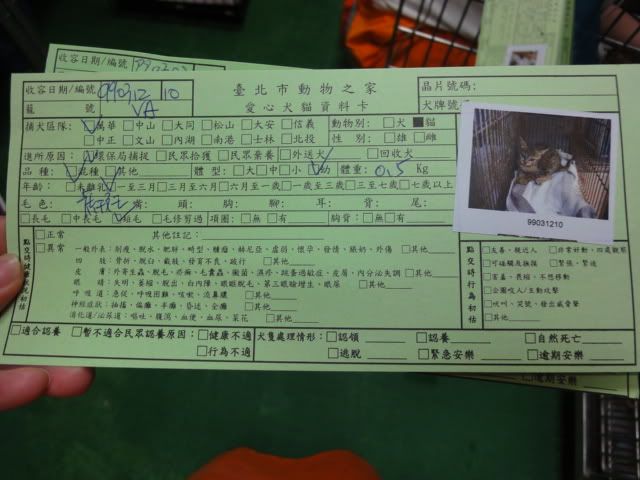 收容日期/編號 990312 10
臺北市動物之家
晶片號碼:
籠號 VA
愛心犬貓資料卡
犬牌號
捕犬區隊: ☑萬華 □中山 □大同 □松山 □大安 □信義 動物別: □犬 ■貓
□中正 □文山 □內湖 □南港 □士林 □北投 性別: □雄 □雌
進所原因: ☑環保局捕捉 □民眾拾獲 □民眾棄養 □外送犬 □回收犬
品種: ☑混種 □其他 體型: □大 □中 □小 ☑幼 體重: 0.5 Kg
年齡: □未離乳 ☑一至三月 □三月至六月 □六月至一歲 □一歲至三歲 □三至七歲 □七歲以上
毛色: 嘴: 頭: 胸: 腳: 耳: 背: 尾:
□長毛 □中長毛 ☑短毛 □毛修剪過 項圈: □無 □有 胸背: □無 □有
99031210
點交時健康狀況初估
□正常 其他註記:
□異常 一般外表: 削瘦、脫水、肥胖、畸型、腫瘤、赫尼亞、虛弱、懷孕、發情、脹奶、外傷 □其他
四肢: 骨折、脫臼、截肢、發育不良、跛行 □其他
皮膚: 外寄生蟲、脫毛、疥癬、毛囊蟲、黴菌、濕疹、跳蚤過敏症、皮屑、內分泌失調 □其他
眼睛: 失明、萎縮、脫出、白內障、眼眶脫毛、第三眼瞼增生、眼屎 □其他
呼吸道: 急促、呼吸困難、咳嗽、流鼻膿 □其他
神經症狀: 抽搐、偏癱、半癱、昏迷、全癱 □其他
消化道/泌尿道: 嘔吐、腹瀉、血便、血尿、菜花 □其他
點交時行為初估
□友善、親近人 □非常好動、四處觀察
□可碰觸及撫摸 □緊張、緊迫
□害羞、畏縮、不想移動
□企圖咬人/主動攻擊
□吠叫、哭號、發出威脅聲
□其他
□適合認養 □暫不適合民眾認養原因: □健康不適 犬隻處理情形: □認領 □認養 □自然死亡
□行為不適 □逃脫 □緊急安樂 □逾期安樂
□逾期安樂